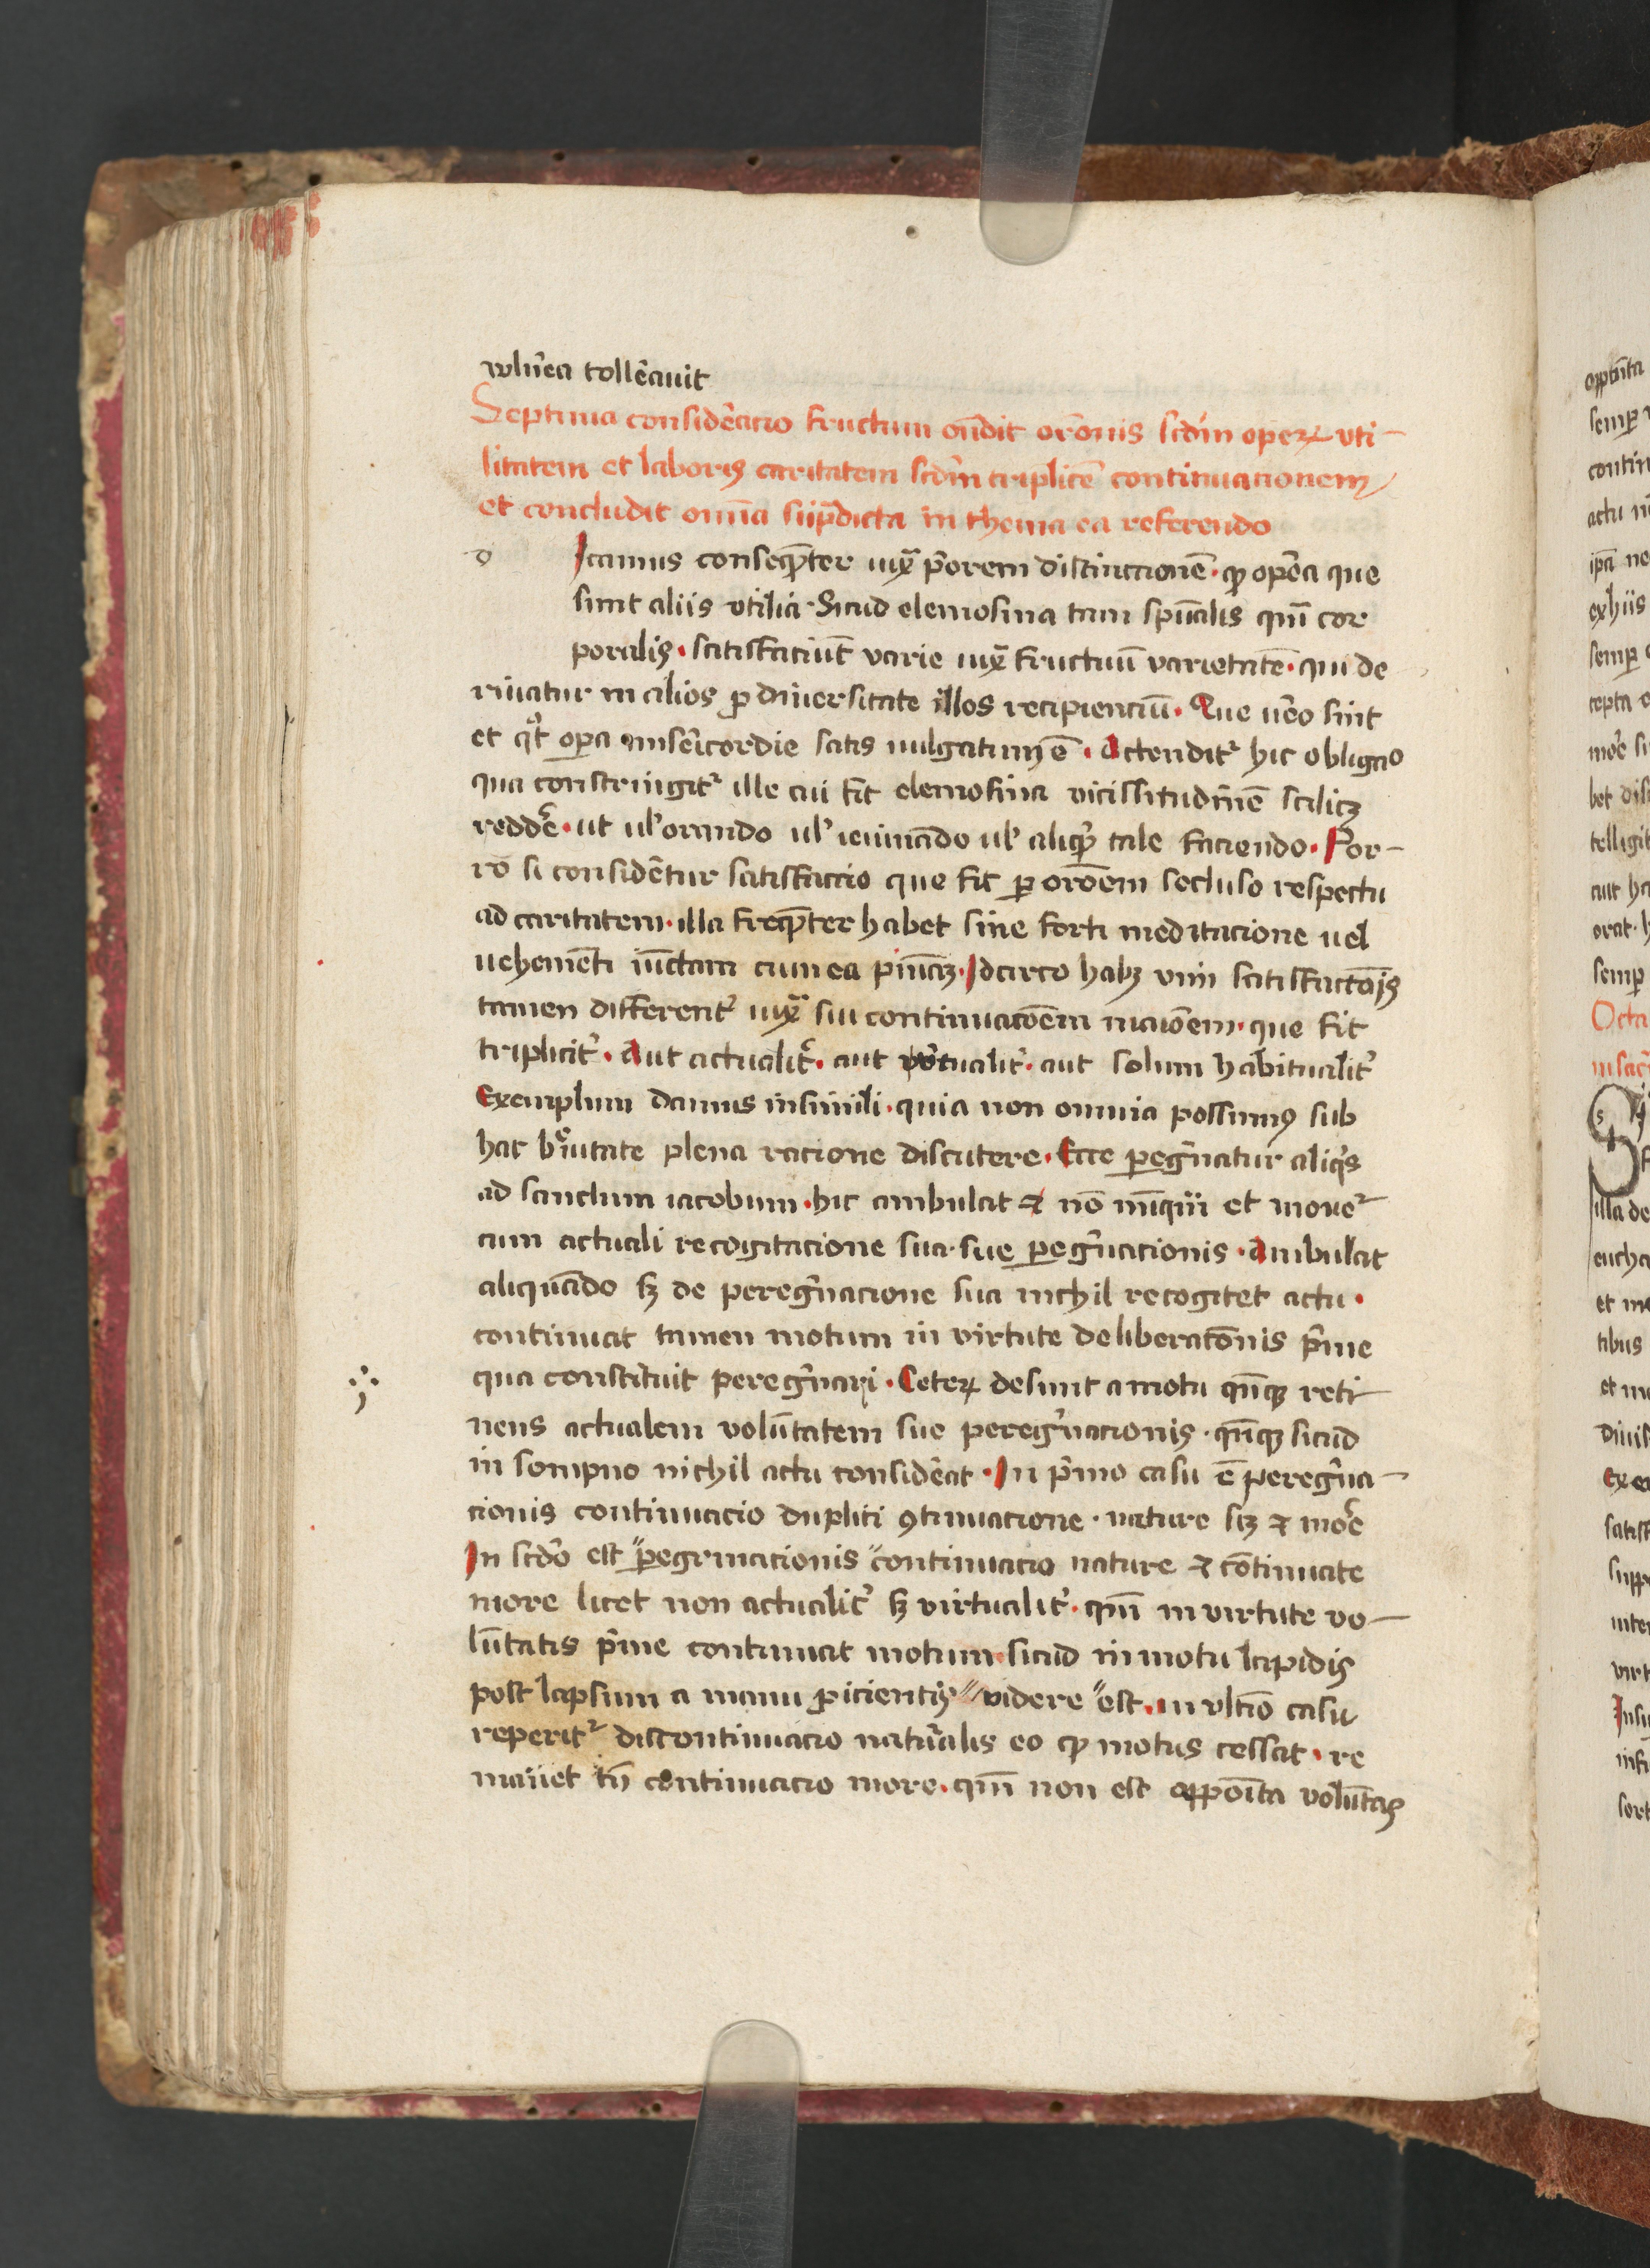 vulnĕa tollēauit
Septima considēacio fructum on̄dit orōnis scdm̄ operꝝ vti-
litatem et laboris caritatem scdm̄ triplicē continuacionem
et concludit omīa sup̄dicta in thema ea referendo
d Icamus conseqn̄ter iuxͣ p̄orem distinctionē. ꝙ opēa que
sunt aliis vtilia. Sicud elemosina tam spūalis qm̄ cor
poralis. satisfaciūt varie iuxͣ fructuū varietatē. qui de
riuatur in alios ꝓ diuersitate illos recipienciū. Que ūeo sint
et qͦt oꝑa misēicordie satis uulgatum ē. Actendit᷑ hic obligacͦ
qua constringit᷑ ille cui fit elemosina vicissitudinē scilicꝫ
reddēe. ut ul̕ orando ul̕ ieiunādo ul̕ aliqd̕ tale faciendo. Por-
ro si considētur satisfactio que fit ꝑ orōem secluso respectu
ad caritatem. illa freqn̄ter habet sine forti meditacione uel
uehemēti iūctam cum ea pūaꝫ. Idcirco habꝫ vim satisfactōis
tamen different᷑ iuxͣ sui continuacōem maiōem. que fit
triplicit᷑. Aut actualit᷑. aut virtualit᷑. aut solum habitualit᷑
Exemplum damus in simili. quia non omnia possumꝰ sub
hac br̄uitate plena racione discutere. Ecce ꝑegn̄atur aliqͥs
ad sanctum iacobum. hic ambulat ⁊ nō nūqm̄ et mouet᷑
cum actuali recogitacione sua. sue ꝑegn̄acionis. Ambulat
aliquādo sꝫ de peregn̄acione sua nichil recogitet actu.
continuat tamen motum in virtute deliberatōnis p̄me
qua constituit peregn̄ari. Ceterꝝ desunt a motu qn̄qꝫ reti-
nens actualem volūtatem sue peregn̄acionis. qn̄qꝫ sicud
in sompno nichil actu considēat. In p̄mo casu ē peregn̄a-
cionis continuacio dupliti ꝯtinuacione. nature scꝫ ⁊ mōe
In scdō est "ꝑegrinacionis "continuacio nature ⁊ cōtinuate
more licet non actualit᷑ sꝫ virtualit᷑. qm̄ in virtute vo-
lūtatis p̄me continuat motum sicud in motu lapidis
post lapsum a manu ꝓicientis "videre "est. in vltīo casu
reperit᷑ discontinuacio natūalis eo ꝙ motus cessat. re
manet tn̄ continuacio more. qm̄ non est apposīta volūtas